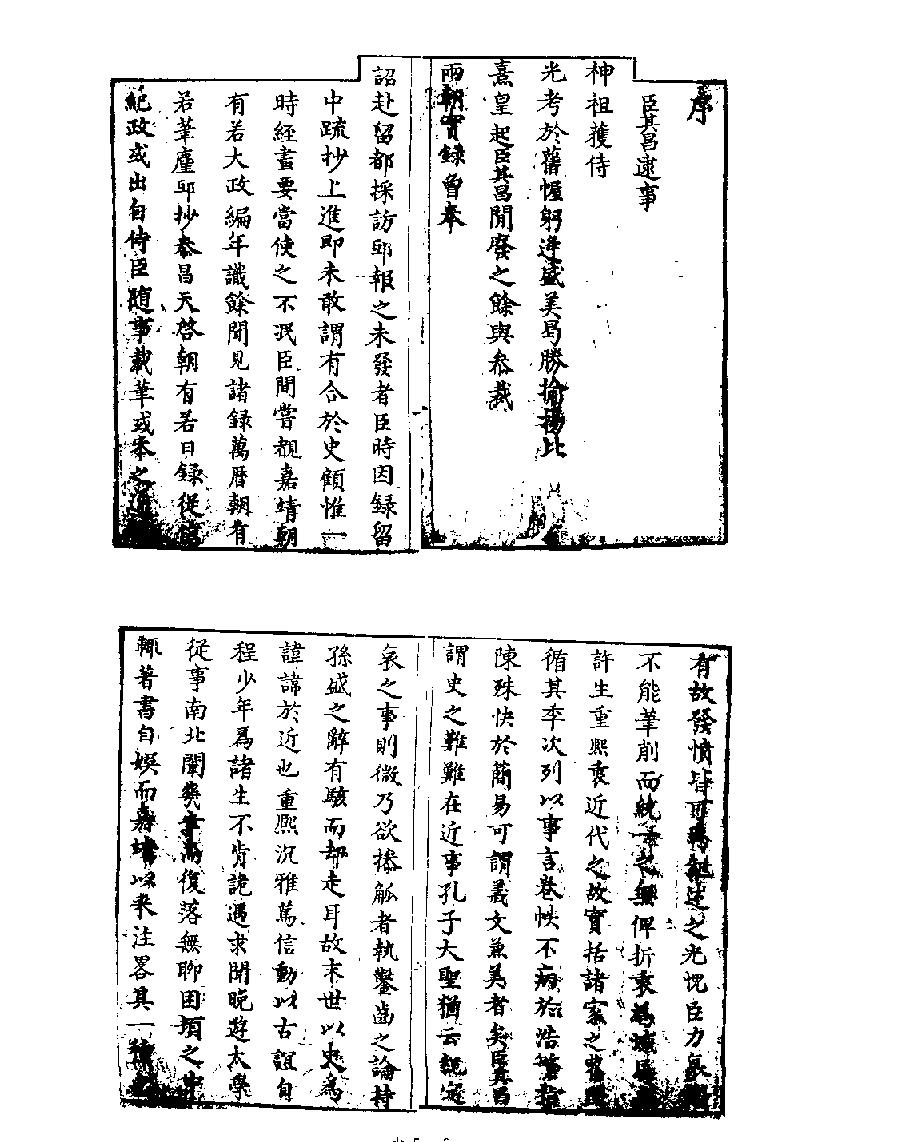 序
臣其昌逮事
神祖獲侍
光考於舊幄躬逢盛美曷勝揄揚比
熹皇起臣其昌閒廢之餘與叅裁
兩朝實錄曾奉
詔赴留都採訪邸報之未發者臣時因録留
中疏抄上進即未敢謂有合於史顧惟一
時經畫要當使之不泯臣閒嘗覩嘉靖朝
有若大政編年識餘聞見諸録萬曆朝有
若筆麈邸抄泰昌天啓朝有若日録從
紀政或出自侍臣随事載筆或本之
有故發憤皆可 述之光愧臣力
不能筆削而 無俾折衷
許生重熙裒近代之故實括諸家之
循其季次列以事言卷帙不病於浩繁
陳殊快於簡易可謂義文兼美者矣臣其昌
謂史之難難在近事孔子大聖猶云
哀之事則微乃欲捧觚者執鑿齒之論持
孫盛之辭有駭而却走耳故末世以史為
諱諦於近也重熙沉雅篤信動以古誼自
程少年為諸生不肯詭遇求開晚遊太學
從事南北闈 復落無聊困頓之中
輒著書自娱而嘉靖以来注畧其一